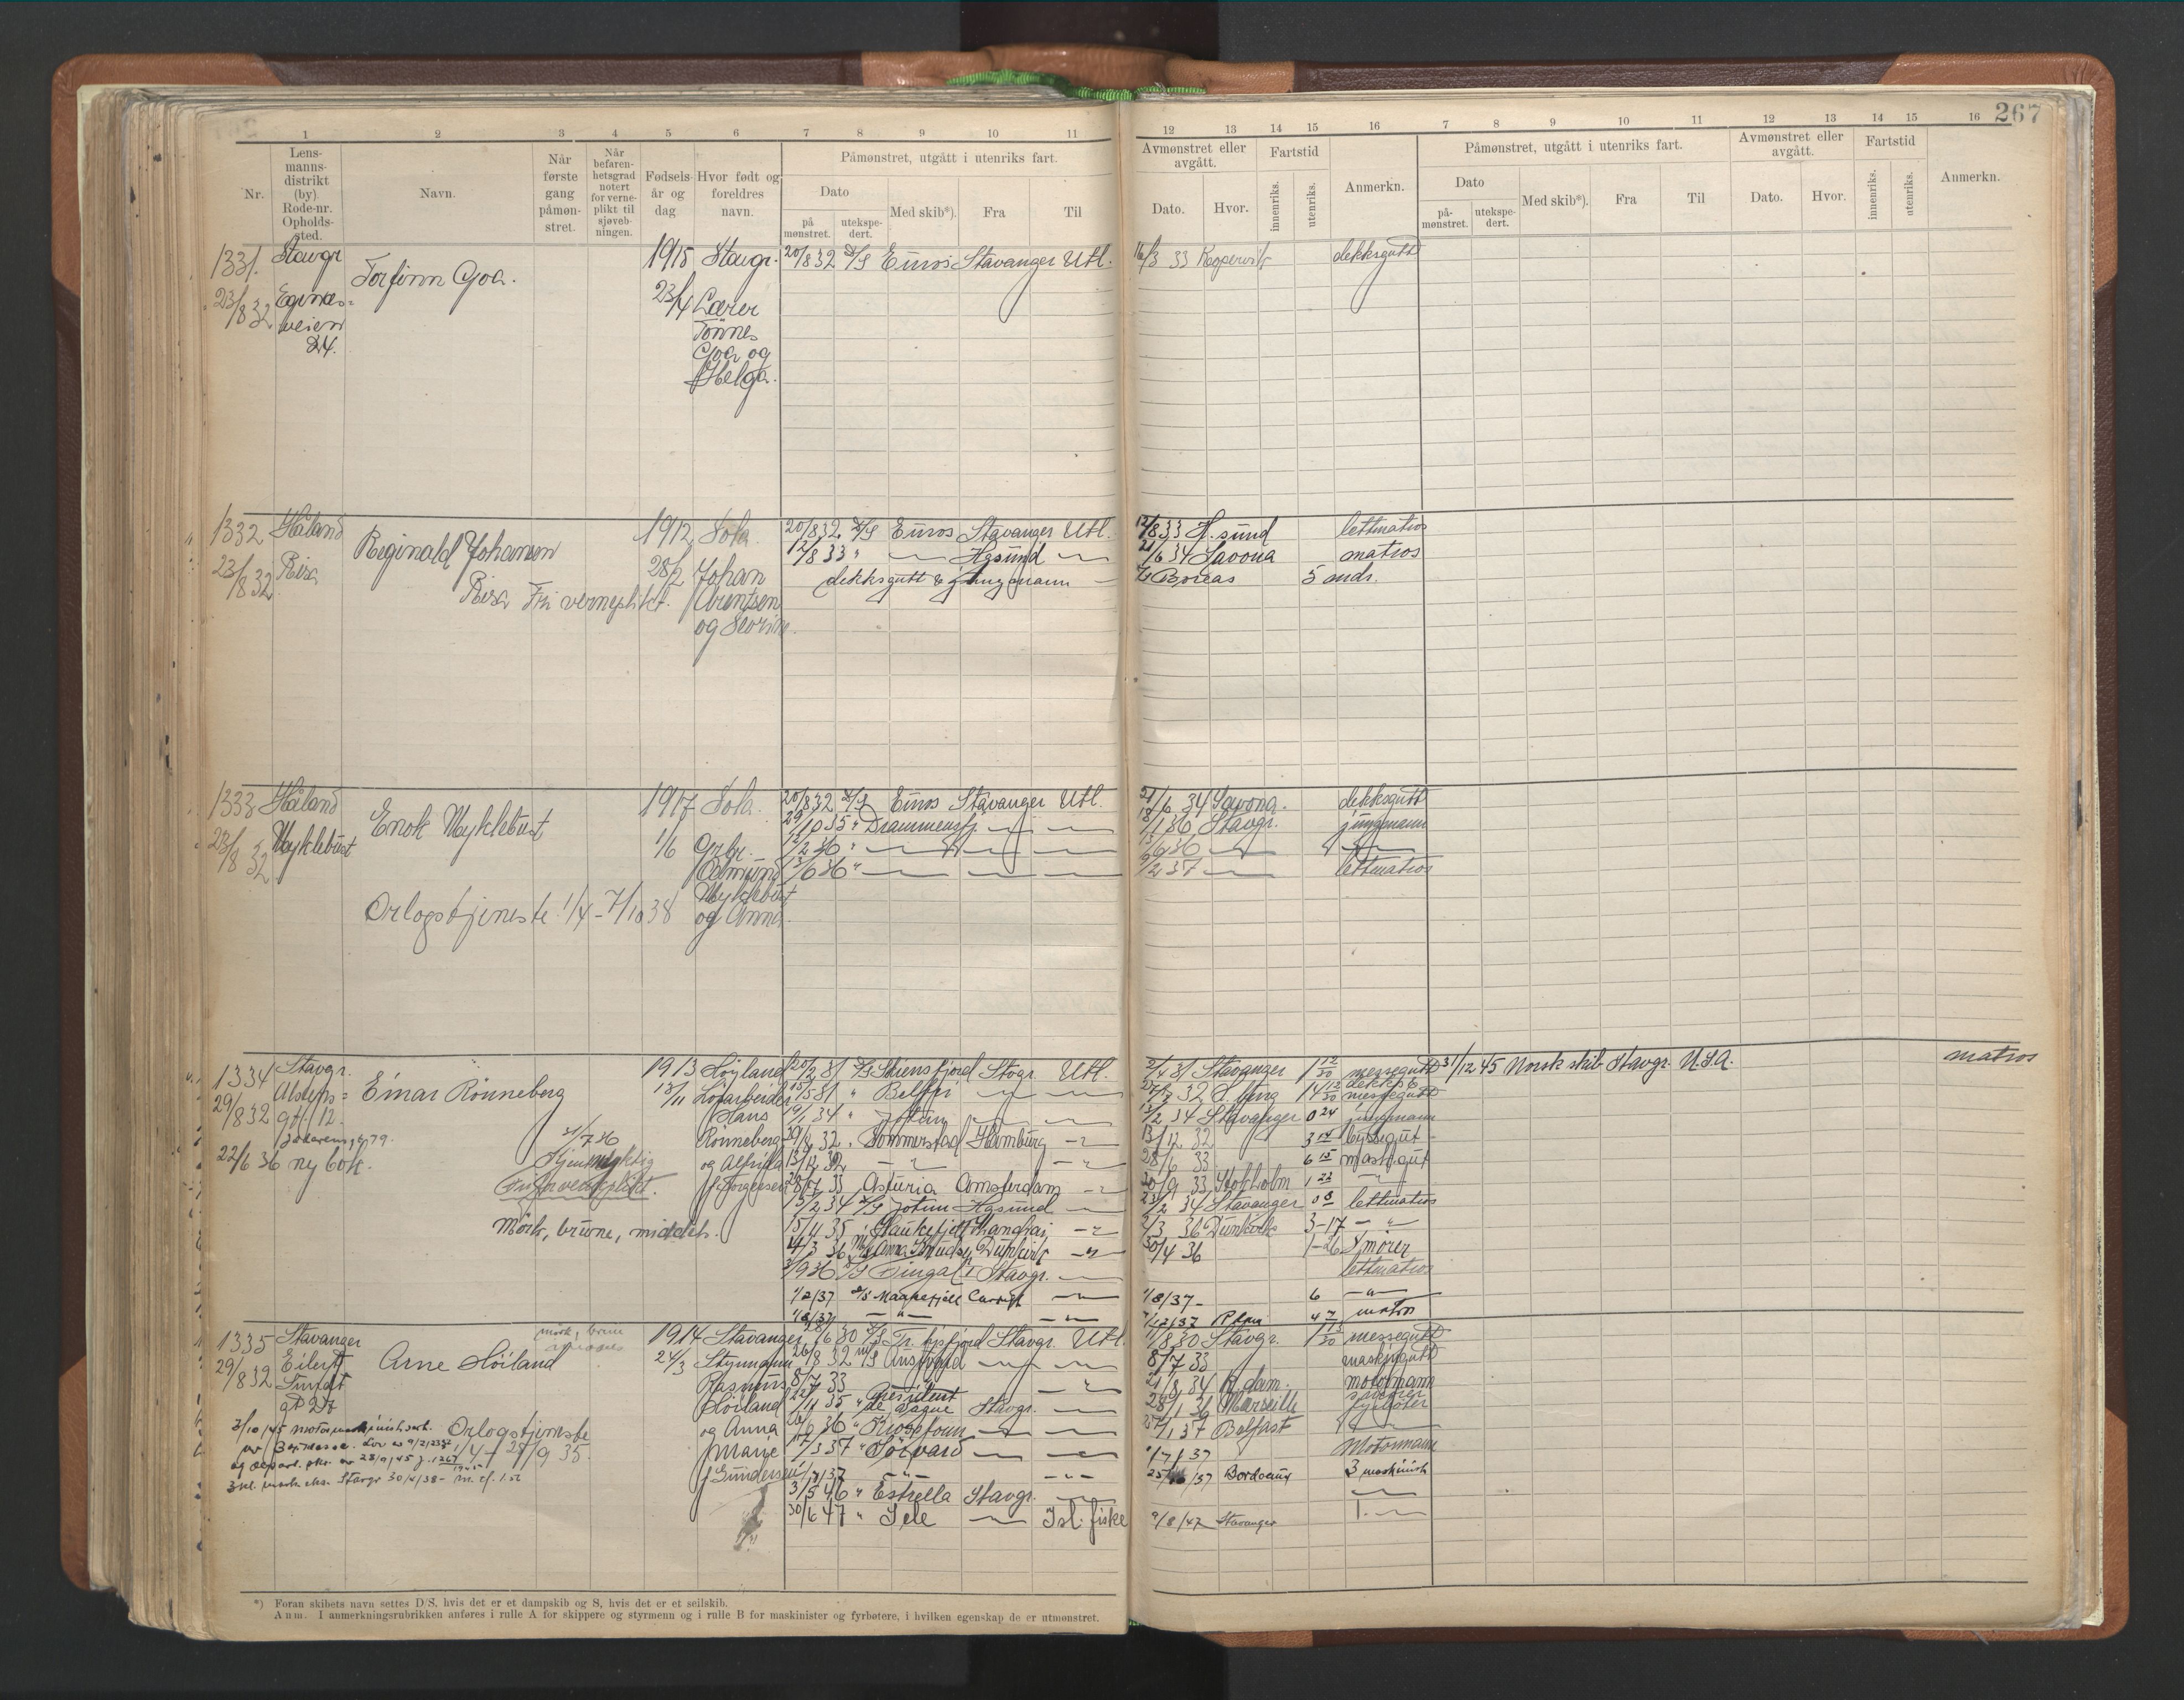 267
1 2 3 4 5 6 7 8 9 10 11
12 13 14 15 16 7 8 9 10 11 12 13 14 15 16
Nr.
Lens-
manns-
distrikt
(by)
Rode-nr.
Opholds-
sted.
Navn.
Når
første
gang
påmøn-
stret.
Når
befaren-
hetsgrad
notert
for verne-
plikt til
sjøveb-
ningen.
Fødsels-
år og
dag
Hvor født og
foreldres
navn.
Påmønstret, utgått i utenriks fart.
Dato
på
mønstret.
utekspe-
dert.
Med skib*).
Fra
Til
Avmønstret eller
avgått.
Dato.
Hvor.
Fartstid
innenriks.
utenriks.
Anmerkn.
Påmønstret, utgått i utenriks fart.
Dato
på-
mønstret.
utekspe-
dert.
Med skib*).
Fra
Til
Avmønstret eller
avgått.
Dato.
Hvor.
Fartstid
innenriks.
utenriks.
Anmerkn.
1331. Stavgr Torfinn Goa. 1915 Stavgr. 20/8 32 D/S Euros Stavanger Utl. 16/3 33 Kopervik dekksgutt
23/8 32 Eganes=
veien
24.
23/4 Lærer
Tönnes
Goa og
Helga.
1332 Håland Reginald Johansen 1912 Sola. 20/8 32 D/S Euros Stavanger Utl. 12/8 33 H.sund lettmatros
23/8 32. Risa 28/2 Johan 12/8 33 " Hgsund 21/6 34 Savona matros
dekksgutt & jungmann Boreas 5 mdr.
Risa Fri verneplikt. Arentsen
og
1333 Håland Enok Myklebust 1917 Sola. 20/8 32 D/S Euros Stavanger Utl. 21/6 34 Savona. dekksgutt
23/8 32 Myklebust 1/6 Grbr. 29/10 35 " Drammensfj. 18/1 36 Stavgr. jungmann
/2 36 " 13/6 36
Admund 13/6 36 " 9/2 37 lettmatros
Myklebust
og Anna.
Orlogstjeneste 1/4 - 7/10 38
1334 Stavgr. Einar Rönneberg 1913 Höyland 20/2 31 D/S Skiensfjord Stvgr. Utl. Stavanger 1 12/30 messegutt 31/12 45 Norsk skib Stavgr. U.S.A. matros
29/8 32 gt. 12. 13/11 Löarbeider 15/5 31 " Belfri 14 12/30 dekks & messegutt
Hans /1 34 " Jotun /2 34 Stavanger 0 24 jungmann
22/6 36 ny bok. Rönneberg /9 32 " Sommerstad Hamburg 13/12 32 3 14 byssegut
og Alfrida 13/12 32 28/6 33 6 15 mask.gut
f. Torgersen 28/7 33 Asturia Amsterdam 20/9 33 Stokholm 1 23
21/7 36
Tjenestepliktig
Fri for verneplikt.
Mörk, brune, middels.
13/2 34 D/S Jotun Hgsund 23/2 34 Stavanger 0 8 lettmatros
15/11 35 " Haukefjell Shanghai 2/3 36 Dunkirk 3-17
4/3 36 M/S Anna Knudsen Dunkirk 30/4 36 1-26 Smörer
3/9 36 D/S Fingal Stavgr. lettmatros
1/2/37 D/S Maakefjell Cardiff 1/8/37 - 6 - " -
1/8/37 - " - /12/37 R.dam 4 7 matros
1335 Stavanger Arne Höiland 1914 Stavanger /6 30 D/S Tr. hjsfjord Stavgr. Utl. 11/8 30 Stavgr. messegutt
29/8 32 Eilert 24/3 Styrmann 26/8 32 m/S 8/7 33 maskingutt
Sundt Rasmus 8/7 33 21/8 34 R.dam. motormann
gt 27 Höiland /11 35 " President de Vogue Stavgr. 28/1 36 Marseille smörer fyrböter
og Anna 26/9 36 " Krossfonn 25/1 37 Belfast
Marie /3 37 " Sörvard 1/7/37 Motormann
f. Gundersen 1/7/37 - " - 25/ /37 Bordeaux 3 maskinist
3/5 46 " Estrella Stavgr.
30/6 47 " Sele Isl. fiske 9/8/47 Stavanger 1.
Orlogstjeneste
1/4 - 27/9 35.
2/10/45 motormaskinistsert.
3 kl. mask. eks. Stavgr 30/4/38 -
*) Foran skibets navn settes D/S, hvis det er et dampskib og S, hvis det er et seilskib.
Anm. I anmerkningsrubrikken anføres i rulle A for skippere og styrmenn og i rulle B for maskinister og fyrbøtere, i hvilken egenskap de er utmønstret.